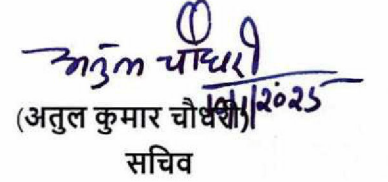 अतुल चौधरी
/2025
(अतुल कुमार चौधरी)
सचिव